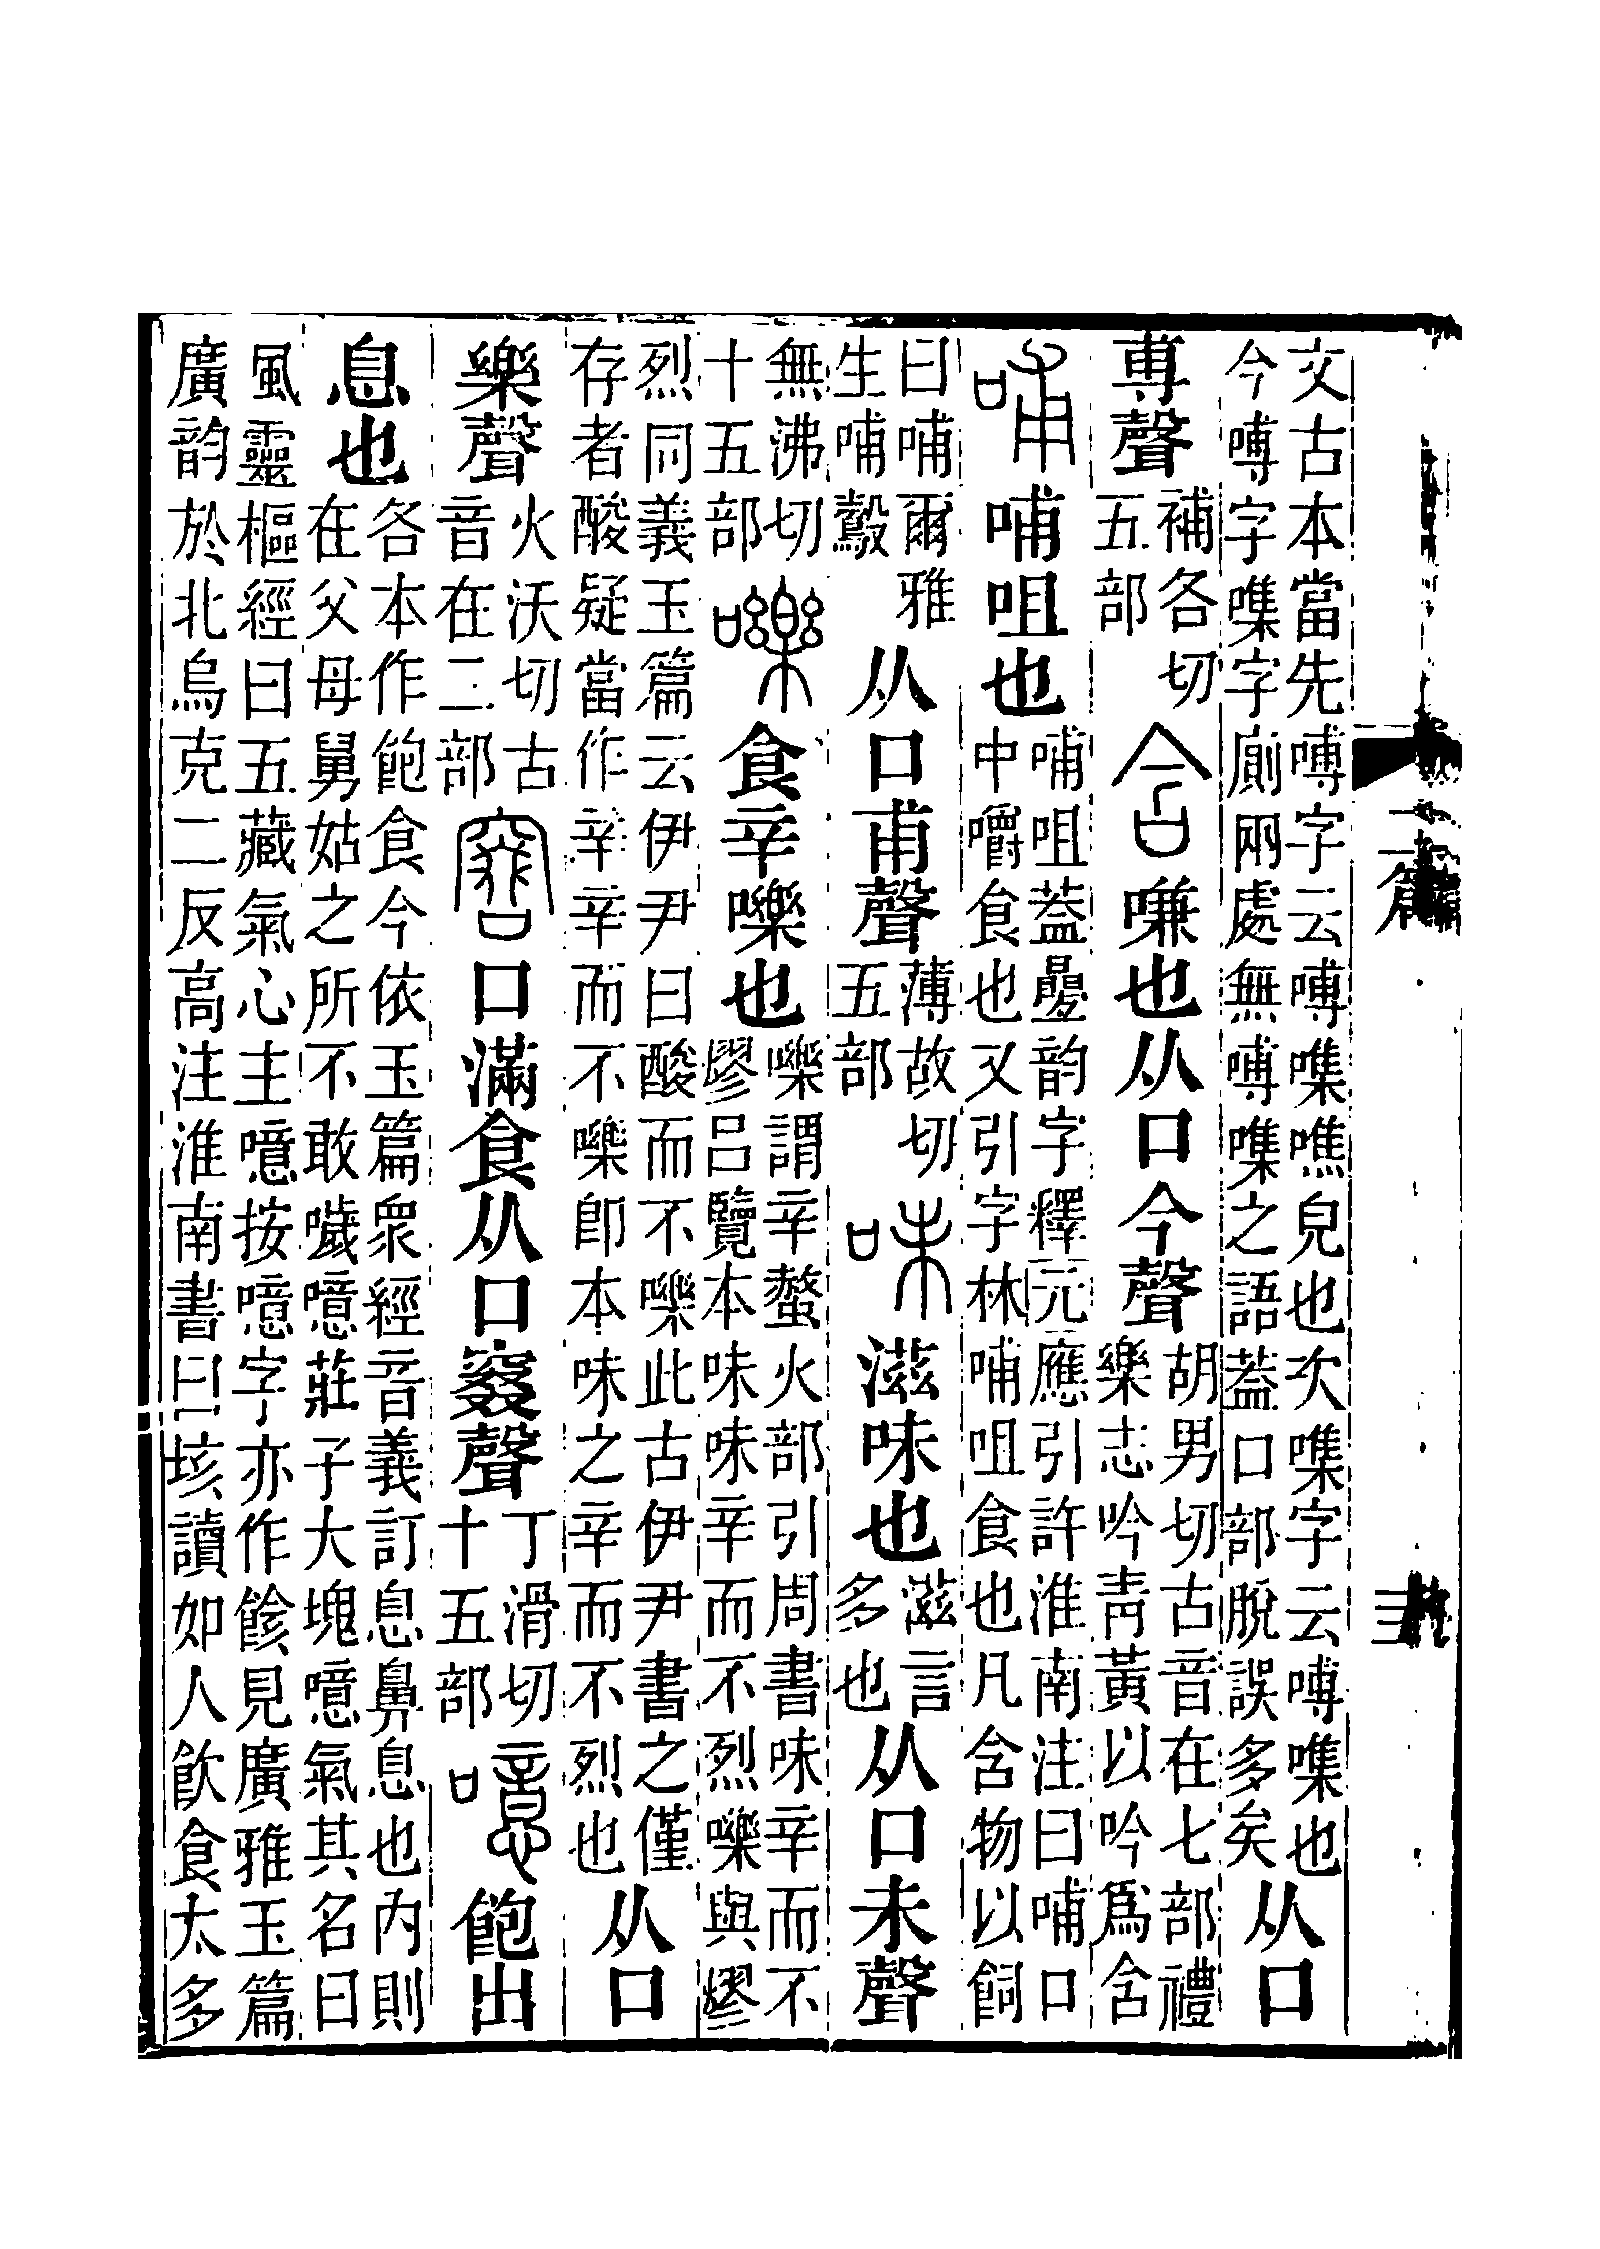 文古本當先㗘字云㗘㗱噍皃也次㗱字云㗘㗱也
今㗘字㗱字廁兩處無㗘㗱之語葢口部脫誤多矣
从口
尃聲
補各切
五部
含嗛也从口今聲
胡男切古音在七部禮
樂志吟青黃以吟爲含
哺哺咀也
哺咀葢疊韵字釋元應引許淮南注曰哺口
中嚼食也又引字林哺咀食也凡含物以飼
曰哺爾雅
生哺鷇
从口甫聲
薄故切
五部
味滋味也
滋言
多也
从口未聲
無沸切
十五部
嚛食辛嚛也
嚛謂辛螫火部引周書味辛而不
熮呂覽本味味辛而不烈嚛與熮
烈同義玉篇云伊尹曰酸而不嚛此古伊尹書之僅
存者酸疑當作辛辛而不嚛卽本味之辛而不烈也
从口
樂聲
火沃切古
音在二部
窡口滿食从口窡聲
丁滑切
十五部
噫飽出
息也
各本作飽食今依玉篇眾經音義訂息鼻息也內則
在父母舅姑之所不敢噦噫莊子大塊噫氣其名曰
風靈樞經曰五藏氣心主噫按噫字亦作餩見廣雅玉篇
廣韵於北烏克二反高注淮南書曰垓讀如人飮食太多
二篇